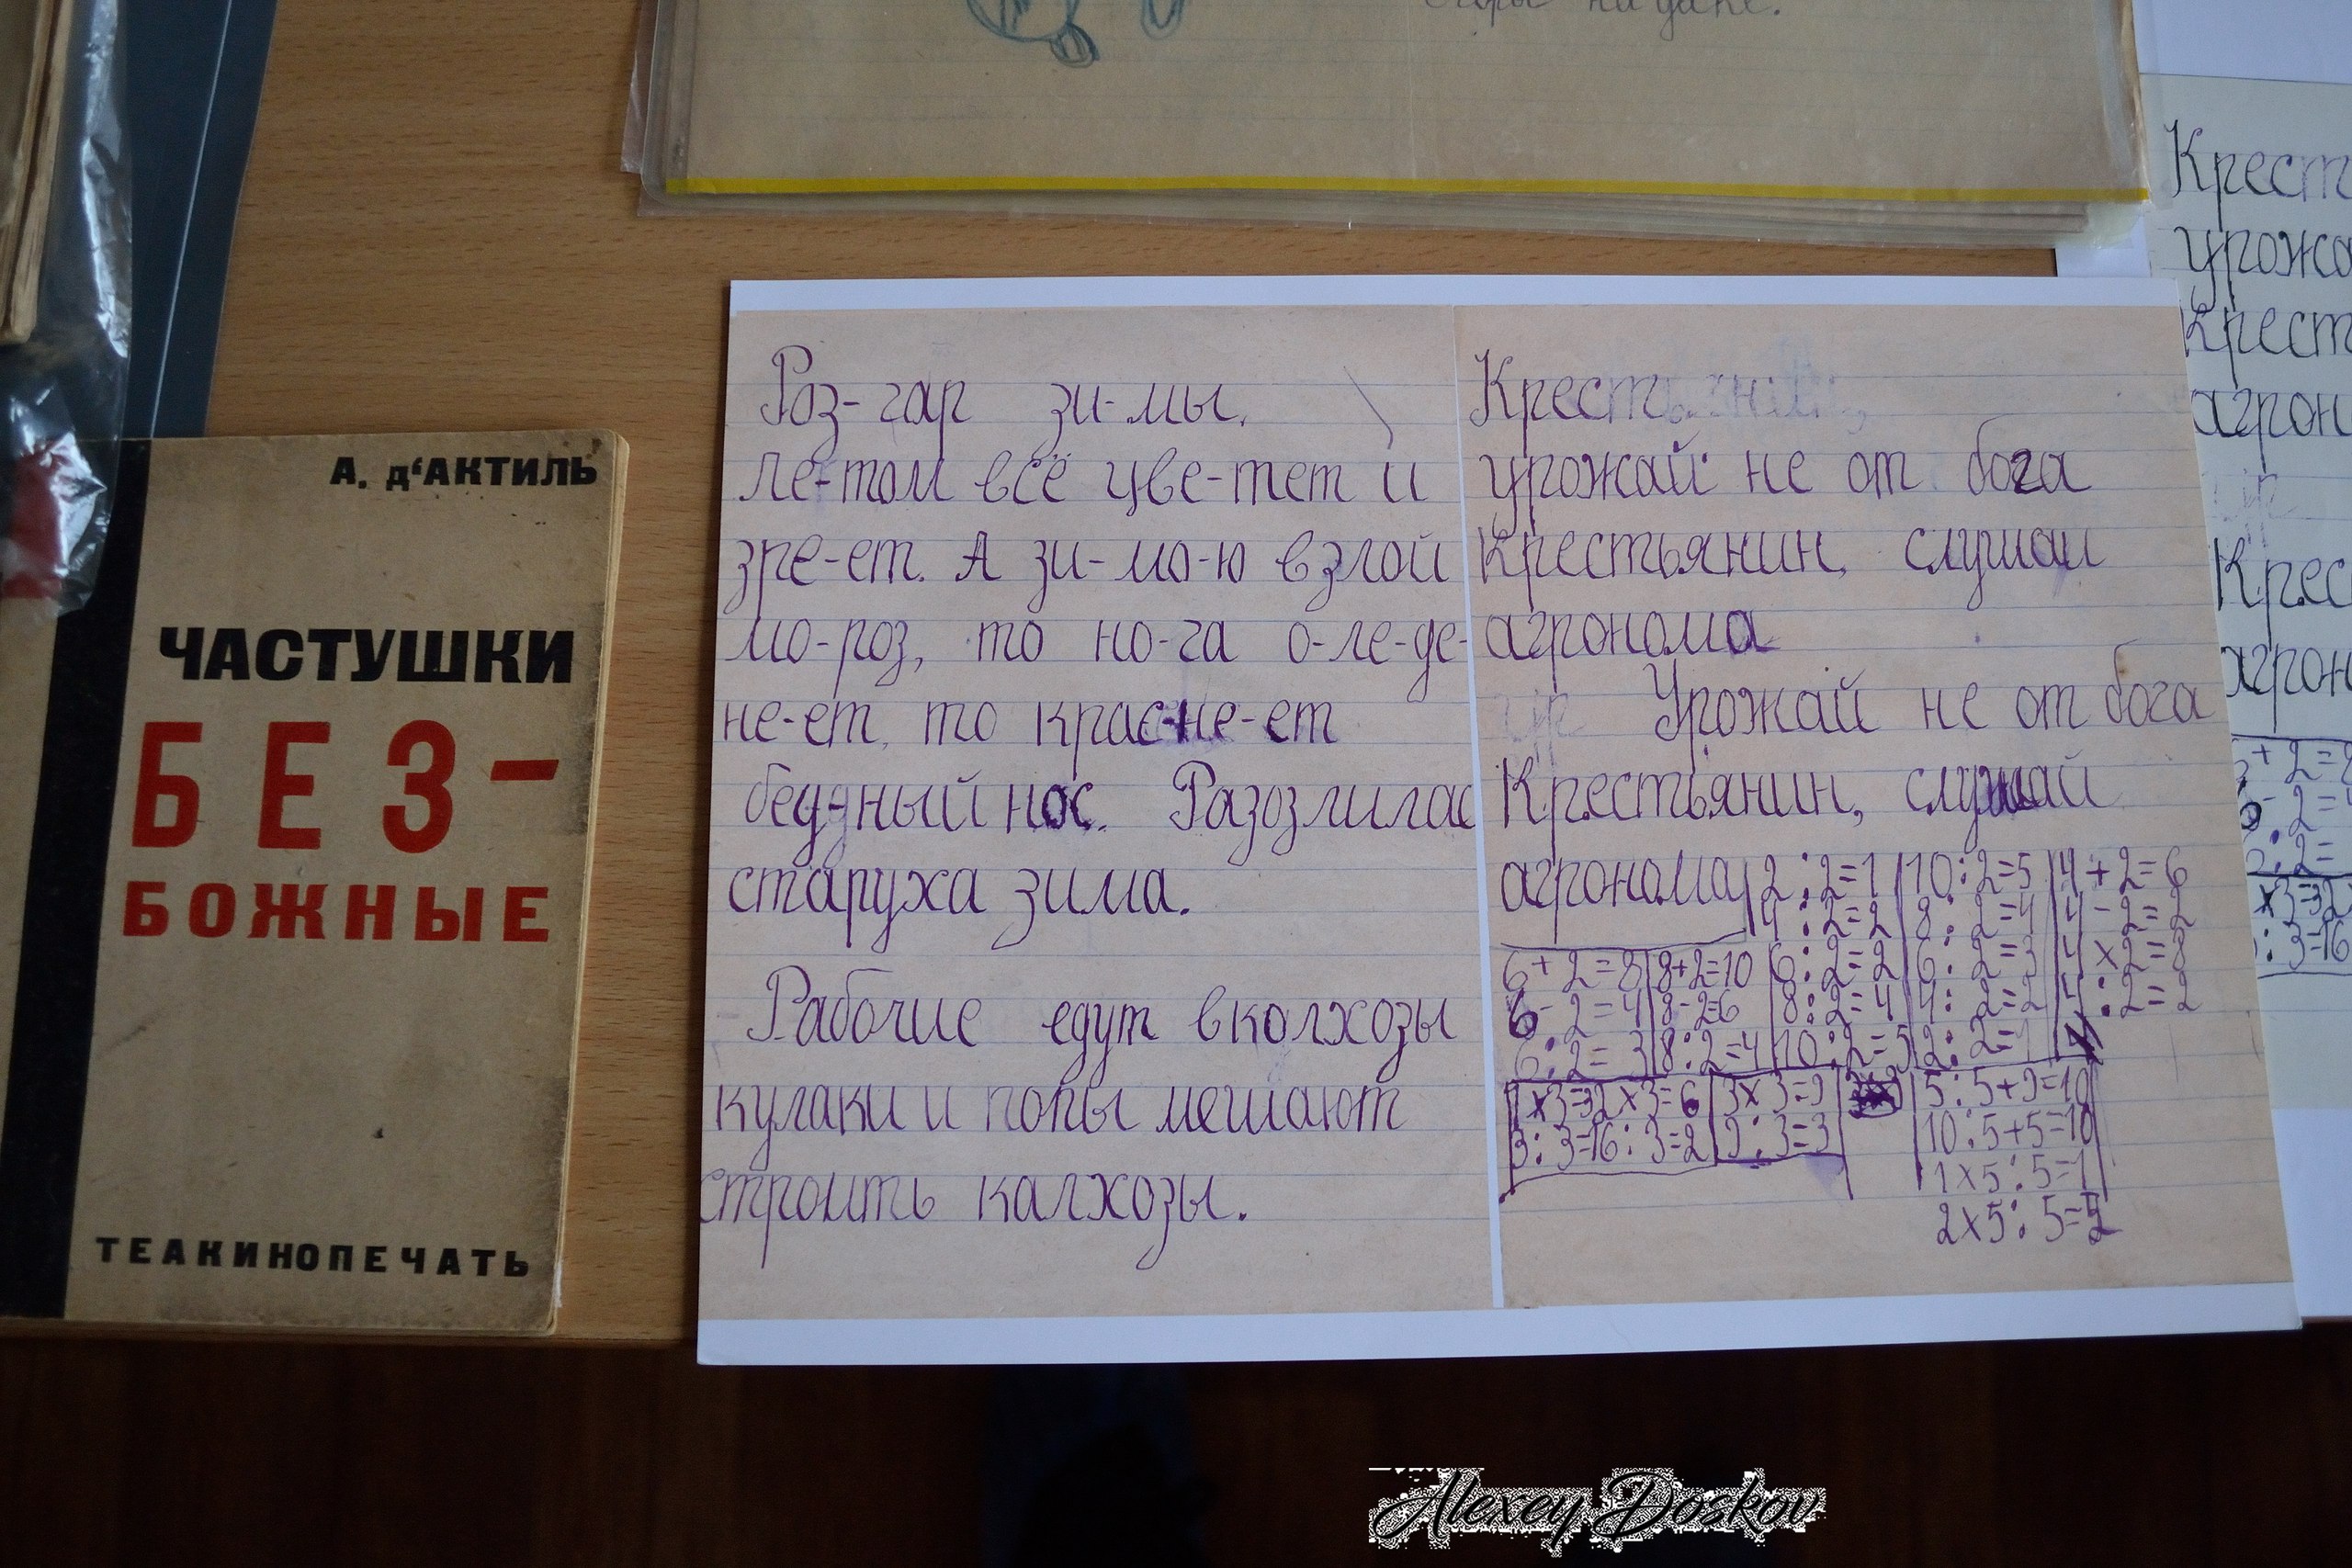 на даче.
А. Д'АКТИЛЬ
ЧАСТУШКИ
БЕЗ-
БОЖНЫЕ
ТЕАКИНОПЕЧАТЬ
Роз-гар зи-мы.
Ле-том всё цве-тет и
зре-ет. А зи-мо-ю в злой
мо-роз, то но-га о-ле-де-
не-ет, то крас-не-ет
бед-ный нос. Разозлилас
старуха зима.
Рабочие едут в колхозы
кулаки и попы мешают
строить калхозы.
Кресть
урожай не от бога
Крестьянин, слушай
агронома
Урожай не от бога
Крестьянин, слушай
агронома
2:2=1 10:2=5 4+2=6
4:2=2 8:2=4 4-2=2
6+2=8 8+2=10 6:2=2 6:2=3 4×2=8
6-2=4 8-2=6 8:2=4 4:2=2 4:2=2
6:2=3 8:2=4 10:2=5 2:2=1
1×3=3 2×3=6 3×3=9 5:5+9=10
3:3=1 6:3=2 9:3=3 10:5+5=10
1×5:5=1
2×5:5=2
Крест
урожа
Крест
агрон
Крес
агрон
Alexey Doskov